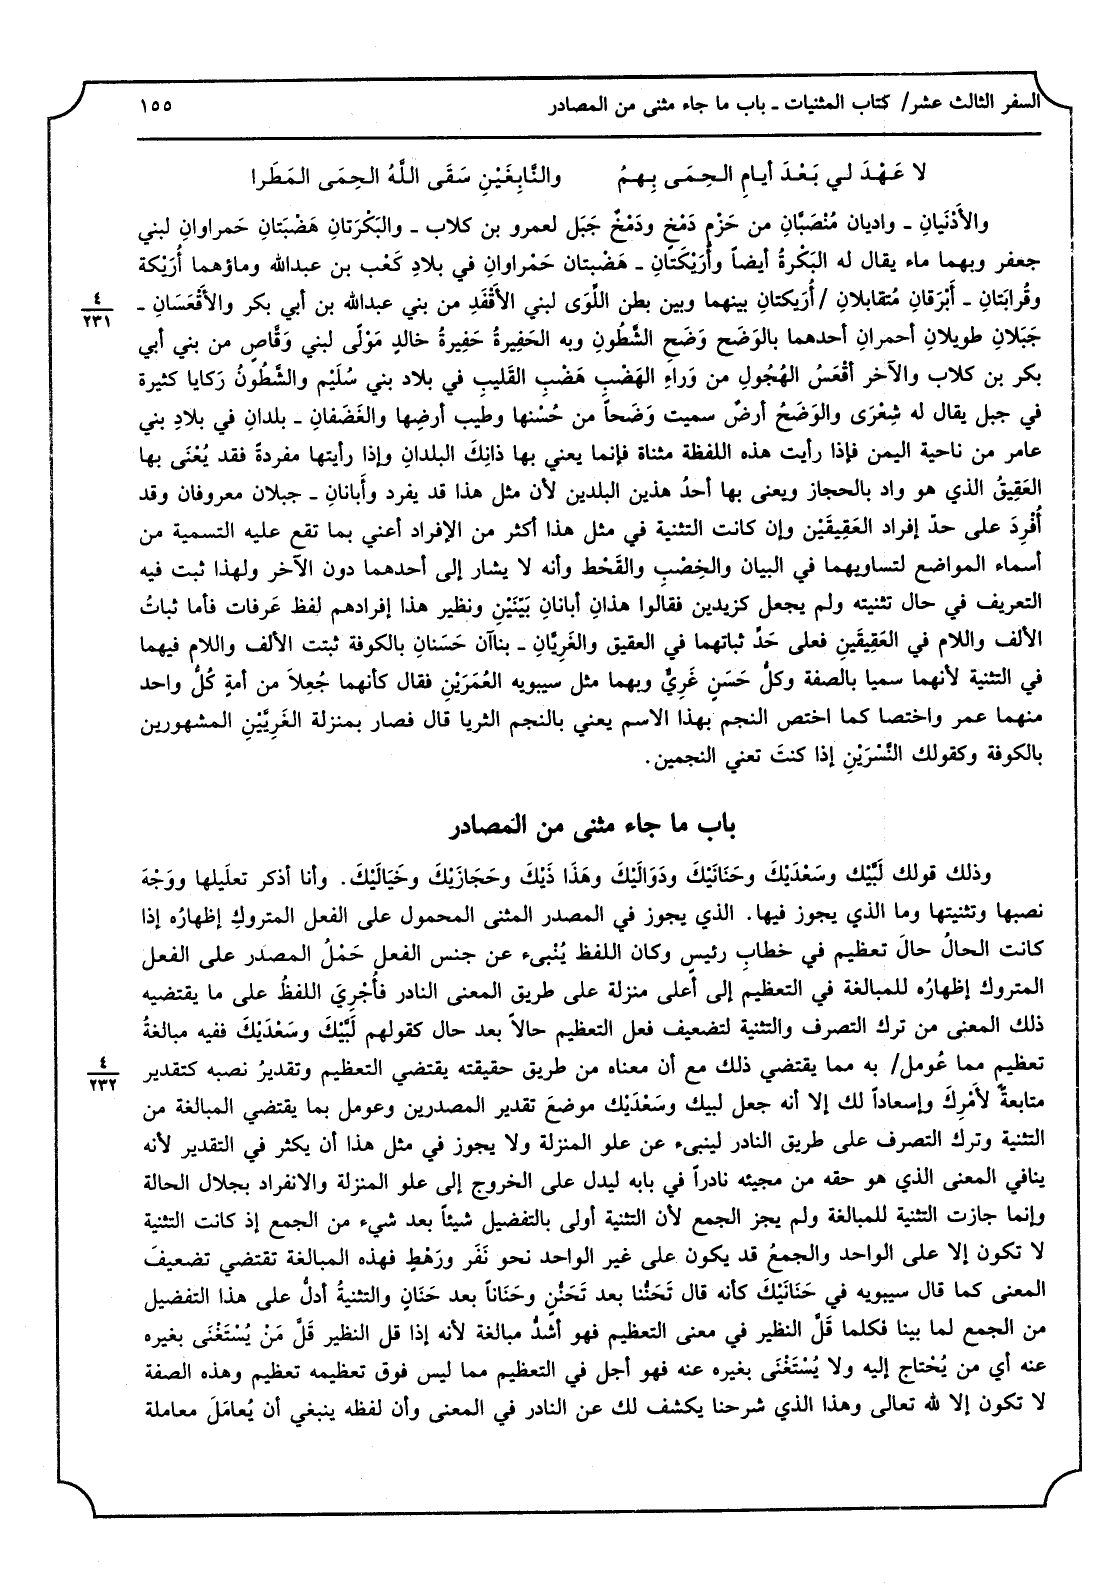 السفر الثالث عشر/ كتاب المثنيات ـ باب ما جاء مثنى من المصادر ١٥٥
لا عَهْدَ لي بَعْدَ أيامِ الحِمَى بِهِمُ والنَّابِغَيْنِ سَقَى اللَّهُ الحِمَى المَطَرا
والأَدْنَيانِ ـ واديان مُنْصَبَّانِ من حَزْمِ دَمْخٍ ودَمْخٌ جَبَل لعمرو بن كلاب ـ والبَكْرَتانِ هَضْبَتانِ حَمراوان لبني
جعفر وبهما ماء يقال له البَكْرةُ أيضاً وأُرَيْكَتانِ ـ هَضْبتان حَمْراوانِ في بلادِ كَعْب بن عبدالله وماؤهما أُرَيْكة
وقُرابَتانِ ـ أَبْرَقانِ مُتقابلان /أُرَيكتانِ بينهما وبين بطن اللِّوَى لبني الأَقْفَدِ من بني عبدالله بن أبي بكر والأَقْعَسَانِ ـ
٤
٢٣١
جَبَلانِ طويلانِ أحمرانِ أحدهما بالوَضَح وَضَحِ الشَّطُونِ وبه الحَفِيرةُ حَفِيرةُ خالدٍ مَوْلًى لبني وَقَّاصٍ من بني أبي
بكر بن كلاب والآخر أقْعَسُ الهُجُولِ من وَراءِ الهَضْبِ هَضْبِ القَليبِ في بلاد بني سُلَيْم والشَّطُونُ رَكايا كثيرة
في جبل يقال له شِعْرَى والوَضَحُ أرضٌ سميت وَضَحاً من حُسْنها وطيب أرضِها والغَضَفانِ ـ بلدانِ في بلادِ بني
عامر من ناحية اليمن فإذا رأيت هذه اللفظة مثناة فإنما يعني بها ذانِكَ البلدانِ وإذا رأيتها مفردةً فقد يُعْنَى بها
العَقِيقُ الذي هو واد بالحجاز ويعنى بها أحدُ هذين البلدين لأن مثل هذا قد يفرد وأَبانانِ ـ جبلان معروفان وقد
أُفْرِدَ على حدّ إفراد العَقِيقَيْن وإن كانت التثنية في مثل هذا أكثر من الإفراد أعني بما تقع عليه التسمية من
أسماء المواضع لتساويهما في البيان والخِصْبِ والقَحْط وأنه لا يشار إلى أحدهما دون الآخر ولهذا ثبت فيه
التعريف في حال تثنيته ولم يجعل كزيدين فقالوا هذانِ أبانانِ بَيِّنَيْنِ ونظير هذا إفرادهم لفظ عَرفات فأما ثباتُ
الألف واللام في العَقِيقَينِ فعلى حَدِّ ثباتهما في العقيق والغَرِيَّانِ ـ بناآن حَسَنانِ بالكوفة ثبتت الألف واللام فيهما
في التثنية لأنهما سميا بالصفة وكلُّ حَسَنٍ غَرِيٌّ وبهما مثل سيبويه العُمَرَيْنِ فقال كأنهما جُعِلاَ من أمةٍ كُلُّ واحد
منهما عمر واختصا كما اختص النجم بهذا الاسم يعني بالنجم الثريا قال فصار بمنزلة الغَرِيَّيْنِ المشهورين
بالكوفة وكقولك النَّسْرَيْنِ إذا كنتَ تعني النجمين.
باب ما جاء مثنى من المَصادر
وذلك قولك لَبَّيْك وسَعْدَيْكَ وحَنَانَيْكَ ودَوَالَيْكَ وهَذَا ذَيْكَ وحَجَازَيْكَ وخَيَالَيْكَ. وأنا أذكر تعلَيلها ووَجْهَ
نصبها وتثنيتها وما الذي يجوز فيها. الذي يجوز في المصدر المثنى المحمول على الفعل المتروكِ إظهارُه إذا
كانت الحالُ حالَ تعظيم في خطابِ رئيسٍ وكان اللفظ يُنْبىء عن جنس الفعل حَمْلُ المصدر على الفعل
المتروك إظهارُه للمبالغة في التعظيم إلى أعلى منزلة على طريق المعنى النادر فأُجْرِيَ اللفظُ على ما يقتضيه
ذلك المعنى من ترك التصرف والتثنية لتضعيف فعل التعظيم حالاً بعد حال كقولهم لَبَّيْكَ وسَعْدَيَكَ ففيه مبالغةُ
تعظيم مما عُومل/ به مما يقتضي ذلك مع أن معناه من طريق حقيقته يقتضي التعظيم وتقديرُ نصبه كتقدير
٤
٢٣٢
متابعةً لأَمْرِكَ وإسعاداً لك إلا أنه جعل لبيك وسَعْدَيْك موضعَ تقدير المصدرين وعومل بما يقتضي المبالغة من
التثنية وترك التصرف على طريق النادر لينبىء عن علو المنزلة ولا يجوز في مثل هذا أن يكثر في التقدير لأنه
ينافي المعنى الذي هو حقه من مجيئه نادراً في بابه ليدل على الخروج إلى علو المنزلة والانفراد بجلال الحالة
وإنما جازت التثنية للمبالغة ولم يجز الجمع لأن التثنية أولى بالتفضيل شيئاً بعد شيء من الجمع إذ كانت التثنية
لا تكون إلا على الواحد والجمعُ قد يكون على غير الواحد نحو نَفَر ورَهْطٍ فهذه المبالغة تقتضي تضعيفَ
المعنى كما قال سيبويه في حَنَانَيْكَ كأنه قال تَحَنُّنا بعد تَحَنُّنٍ وحَنَاناً بعد حَنَانٍ والتثنيةُ أدلُّ على هذا التفضيل
من الجمع لما بينا فكلما قَلَّ النظير في معنى التعظيم فهو أشدُّ مبالغة لأنه إذا قل النظير قَلَّ مَنْ يُسْتَغْنَى بغيره
عنه أي من يُحْتاج إليه ولا يُسْتَغْنَى بغيره عنه فهو أجل في التعظيم مما ليس فوق تعظيمه تعظيم وهذه الصفة
لا تكون إلا لله تعالى وهذا الذي شرحنا يكشف لك عن النادر في المعنى وأن لفظه ينبغي أن يُعامَلَ معاملة